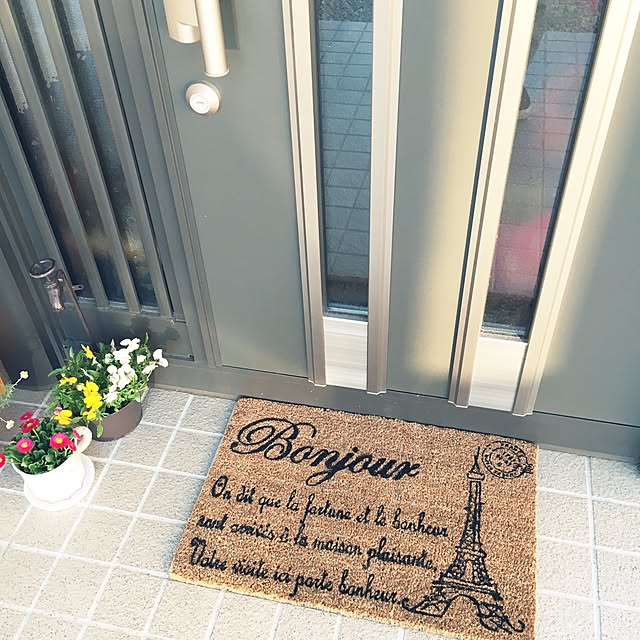 Bonjour
On dit que la fortune et le bonheur
sont arrivés à la maison plaisante.
Votre visite ici porte bonheur.